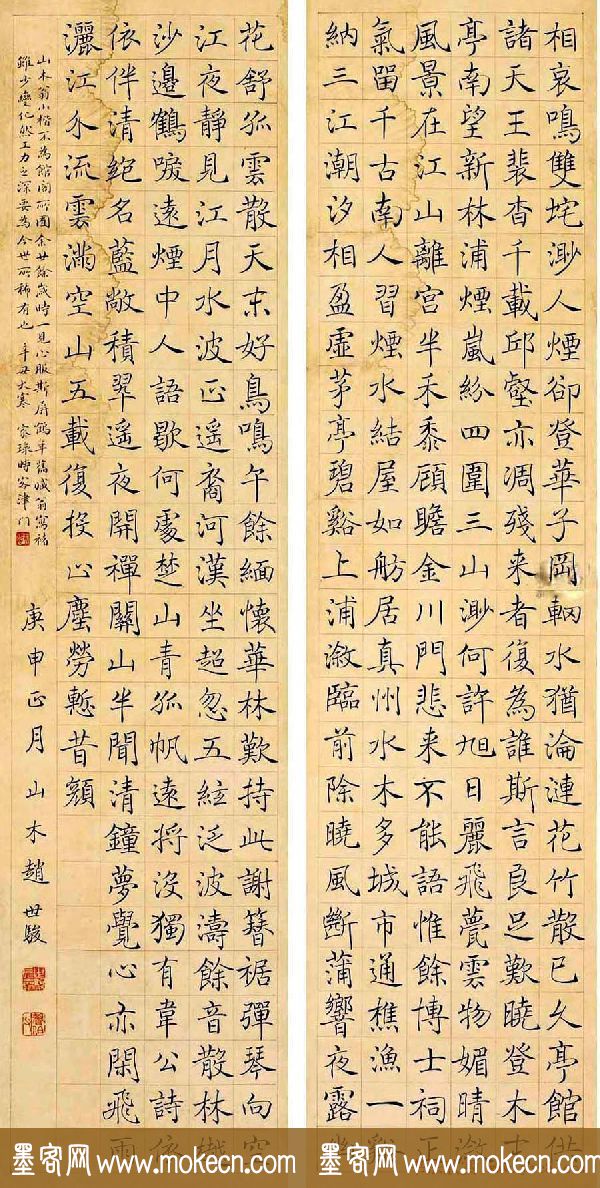 相哀鳴雙垞渺人煙卻登華子岡輞水猶淪漣花竹散已久亭館
諸天王裴杳千載邱壑亦凋殘来者復為誰斯言良足歎曉登木
亭南望新林浦煙嵐紛四圍三山渺何許旭日麗飛甍雲物媚晴
風景在江山離宮半禾黍顧瞻金川門悲来不能語惟餘博士祠
氣留千古南人習煙水結屋如舫居真州水木多城市通樵漁一
納三江潮汐相盈虛茅亭碧谿上浦漵臨前除曉風斷蒲響夜露
花舒孤雲散天末好鳥鳴午餘緬懷華林歎持此謝簪裾彈琴向
江夜静見江月水波正遥裔河漢坐超忽五絃泛波濤餘音散林
沙邊鶴唳遠煙中人語歇何處楚山青孤帆遠将沒獨有韋公詩
依伴清絕名藍敞積翠遥夜開禪關山半聞清鐘夢覺心亦閑飛
灑江水流雲滿空山五載復投心塵勞慙昔顏
山木翁小楷不為館閣所囿余廿餘歲時一見心服斯屏
雖少變化然工力之深要為今世所稀有也辛丑大寒
庚申正月山木趙世駿
墨客网 www.mokecn.com
墨客网 www.mokecn.com